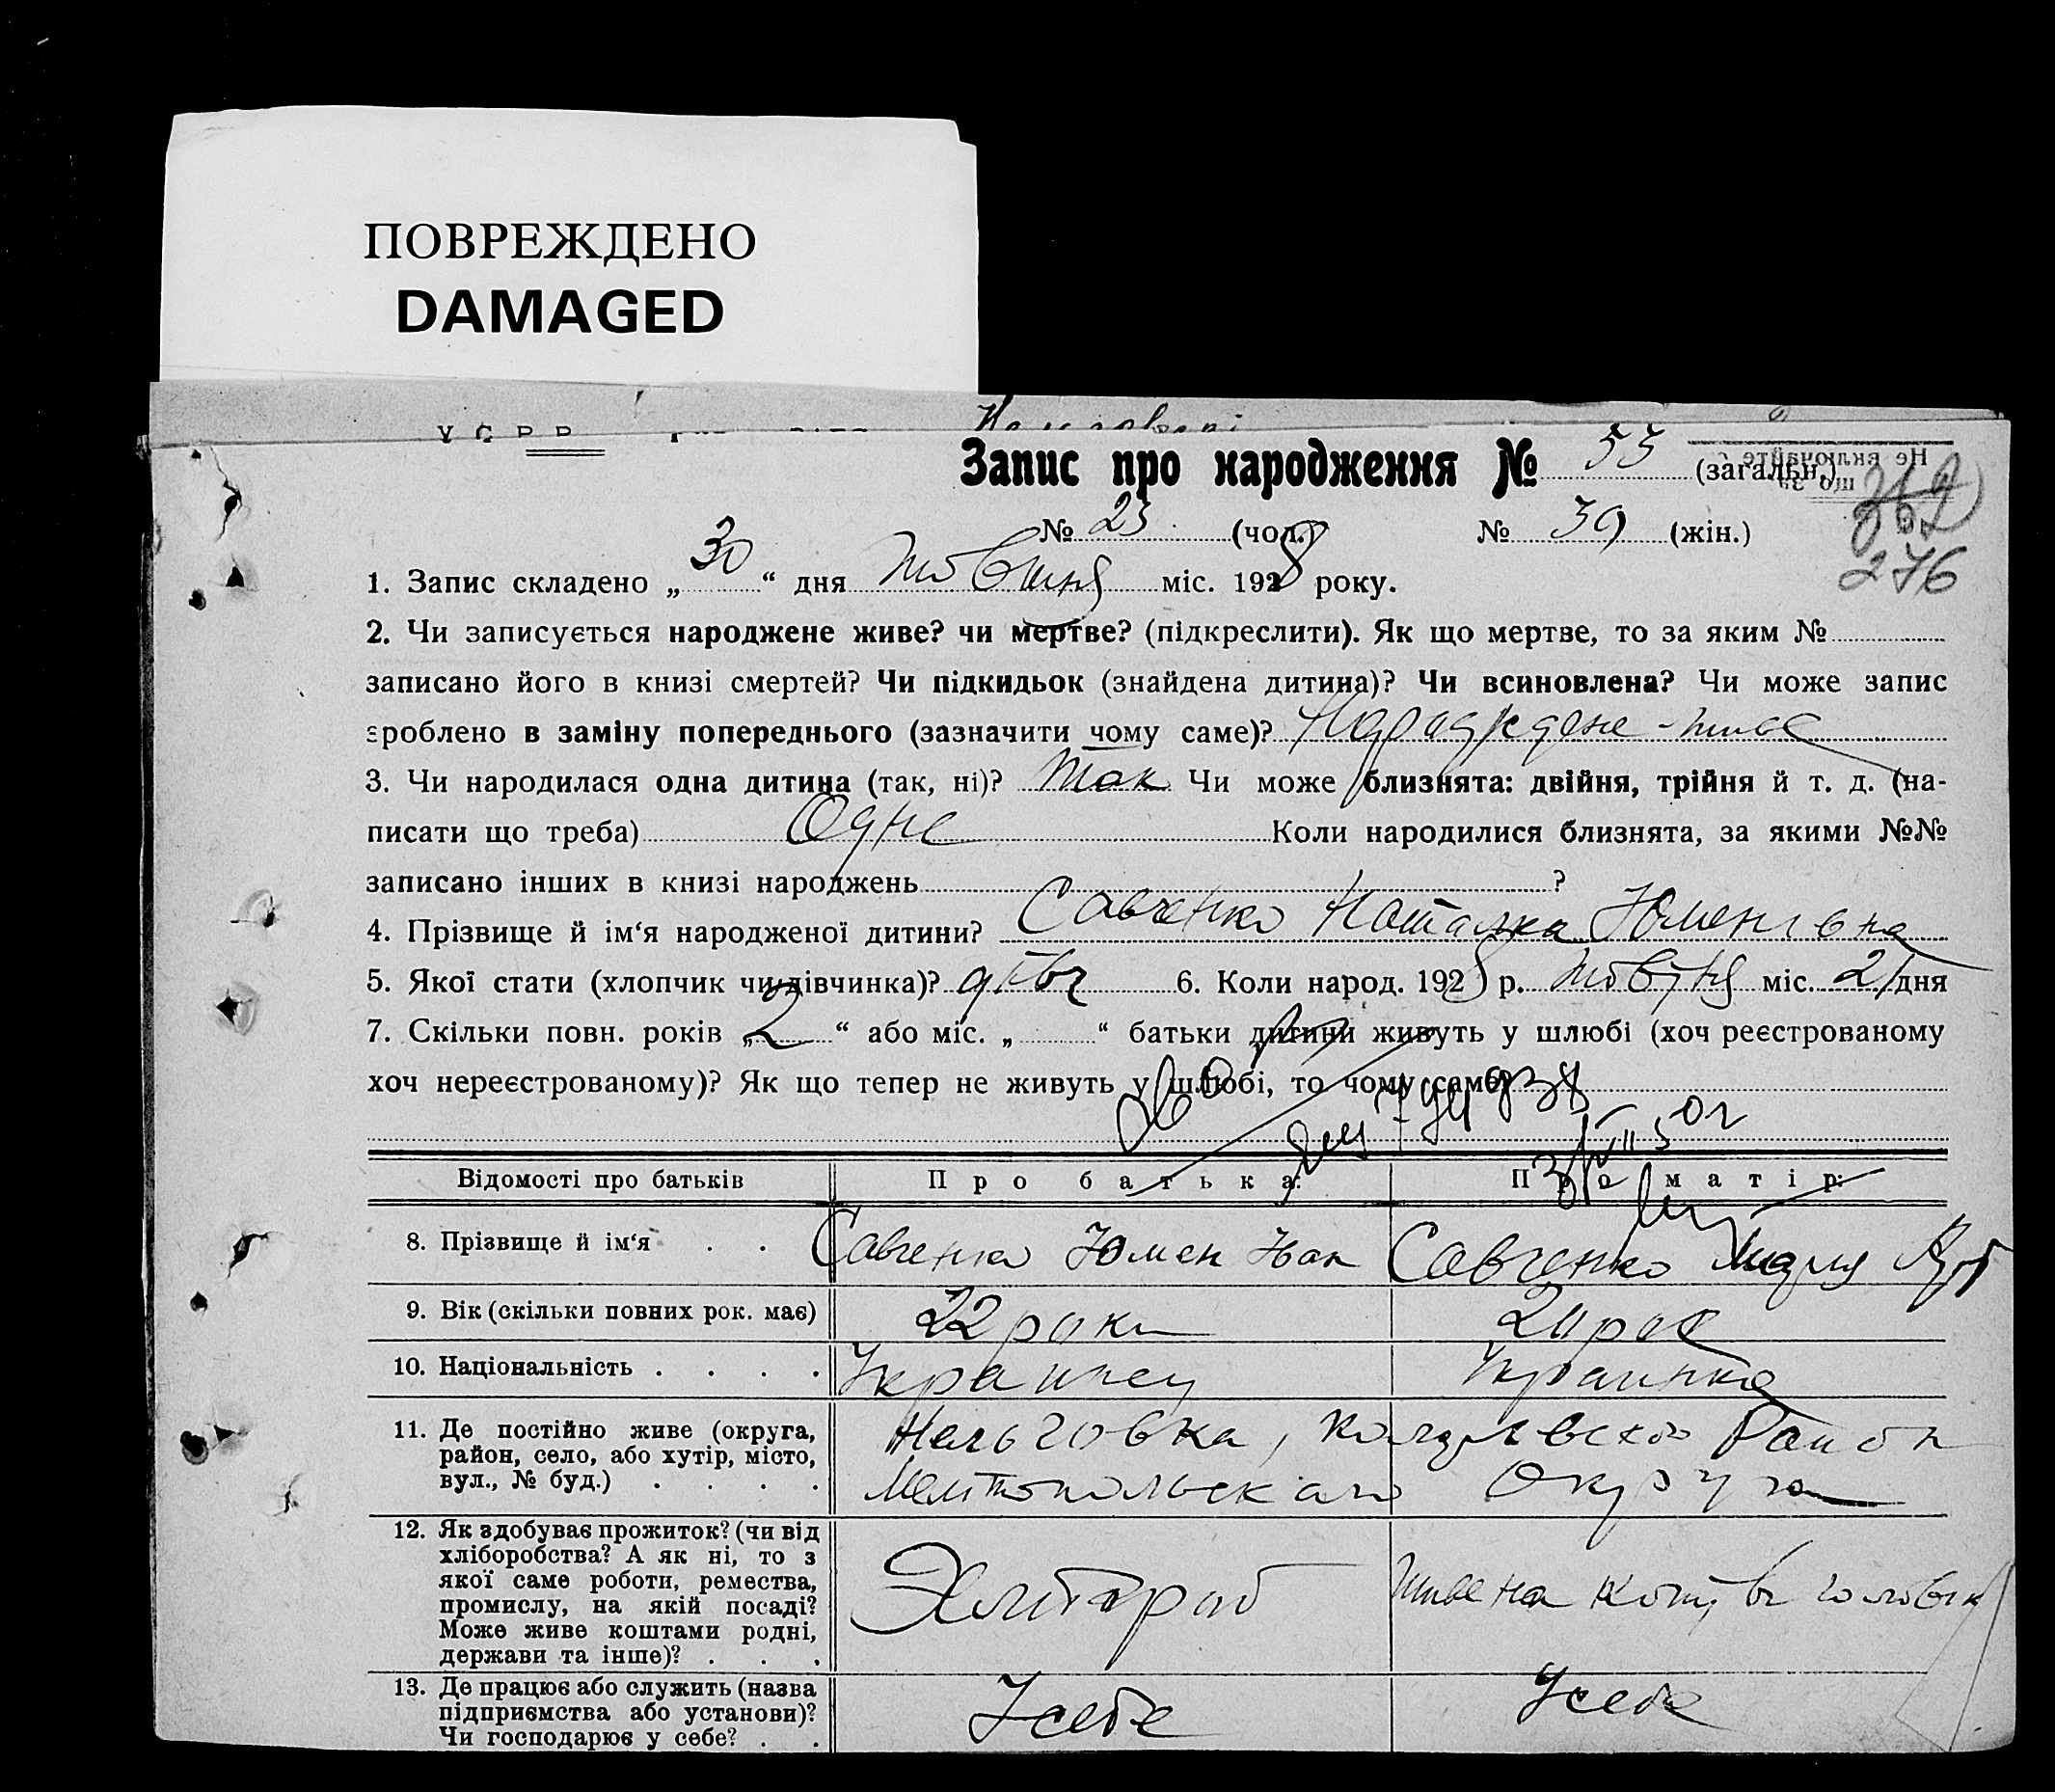 ПОВРЕЖДЕНО
DAMAGED
Запис про народження № 55 (загальн.)
362
№ 25 (чол.) № 30 (жін.)
276
1. Запис складено „30“ дня жовтня міс. 1928 року.
2. Чи записується народжене живе? чи мертве? (підкреслити). Як що мертве, то за яким №
записано його в книзі смертей? Чи підкидьок (знайдена дитина)? Чи всиновлена? Чи може запис
зроблено в заміну попереднього (зазначити чому саме)? Народжене-живе
3. Чи народилася одна дитина (так, ні)? Так Чи може близнята: двійня, трійня й т. д. (на-
писати що треба) Одне Коли народилися близнята, за якими №№
записано інших в книзі народжень ?
4. Прізвище й ім‘я народженої дитини? Савченко Наталка Юменовна
5. Якої стати (хлопчик чи дівчинка)? дівч 6. Коли народ. 1928 р. жовтня міс. 21 дня
7. Скільки повн. років „2“ або міс. „ “ батьки дитини живуть у шлюбі (хоч реєстрованому
хоч нереєстрованому)? Як що тепер не живуть у шлюбі, то чому саме?
Відомості про батьків Про батька: Про матір:
8. Прізвище й ім‘я . . Савченко Юмен Иван Савченко Мария
9. Вік (скільки повних рок. має) 22 роки 20 рок
10. Національність . . . . Украинец Украинка
11. Де постійно живе (округа,
район, село, або хутір, місто,
вул., № буд.) . . . .
Нельговка, Район
Мелитопольскаго Округа
12. Як здобуває прожиток? (чи від
хліборобства? А як ні, то з
якої саме роботи, ремества,
промислу, на якій посаді?
Може живе коштами родні,
держави та інше)? . . .
Хлібороб живе на кошт чоловік
13. Де працює або служить (назва
підприємства або установи)?
Чи господарює у себе? . .
У себе У себе